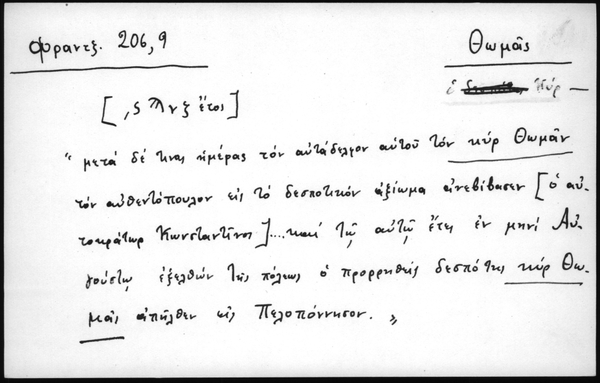 Φραντζ. 206,9
Θωμᾶς
ὁ Κύρ —
[ ͵ϛϡνζ ἔτος ]
"μετά δέ τινας ἡμέρας τόν αὐτάδελφον αὐτοῦ τόν κύρ Θωμᾶν
τόν αὐθεντόπουλον εἰς τό δεσποτικόν ἀξίωμα ἀνεβίβασεν [ὁ αὐ-
τοκράτωρ Κωνσταντῖνος]....καί τῷ αὐτῷ ἔτει ἐν μηνί Αὐ-
γούστῳ ἐξελθών τῆς πόλεως ὁ προρρηθείς δεσπότης κύρ Θω-
μᾶς ἀπῆλθεν εἰς Πελοπόννησον."